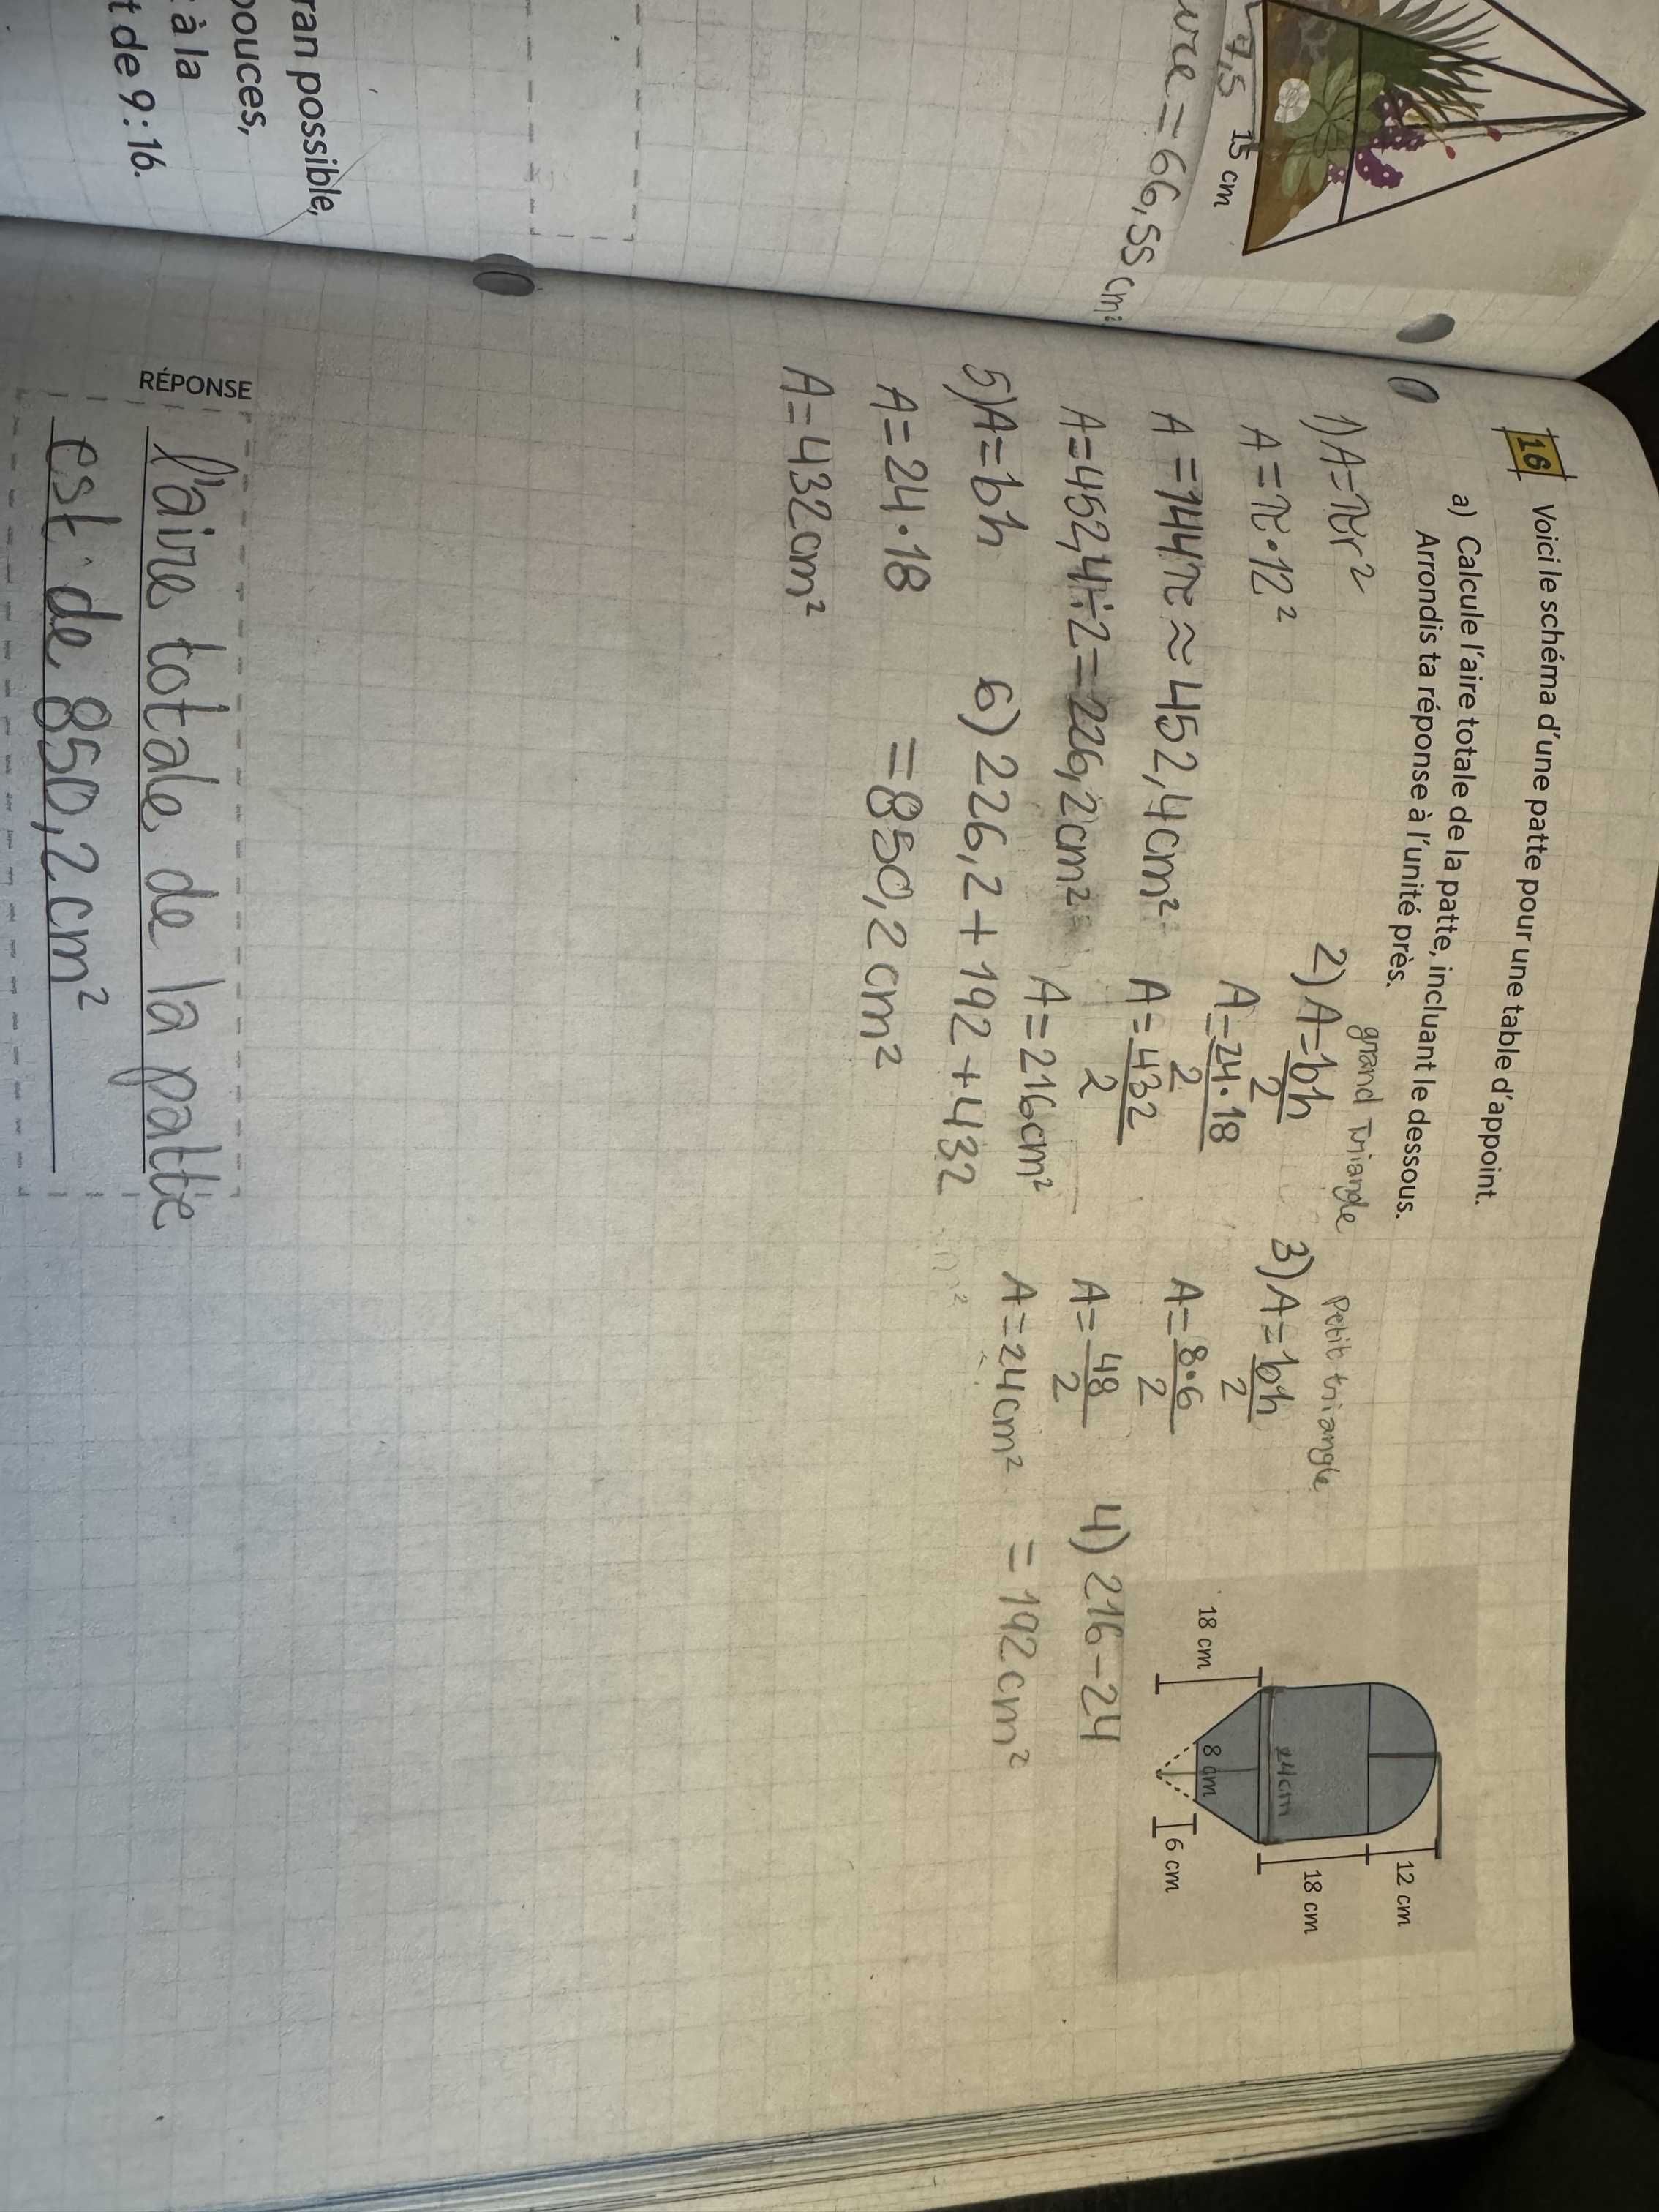 7,5
15 cm
ure = 66,55 cm²
ran possible,
pouces,
à la
t de 9 : 16.
16 Voici le schéma d'une patte pour une table d'appoint.
a) Calcule l'aire totale de la patte, incluant le dessous.
Arrondis ta réponse à l'unité près.
12 cm
18 cm
24cm
18 cm
8 cm
6 cm
1) A=πr²
A=π·12²
A=144π≈452,4cm²
A=452,4÷2=226,2cm²
grand Triangle
2) A=bh/2
A=24·18/2
A=432/2
A=216cm²
Petit triangle
3) A=bh/2
A=8·6/2
A=48/2
A=24cm²
4) 216-24
=192cm²
5) A=bh
A=24·18
A=432cm²
6) 226,2+192+432
=850,2cm²
RÉPONSE
l'aire totale de la patte
est de 850,2cm²